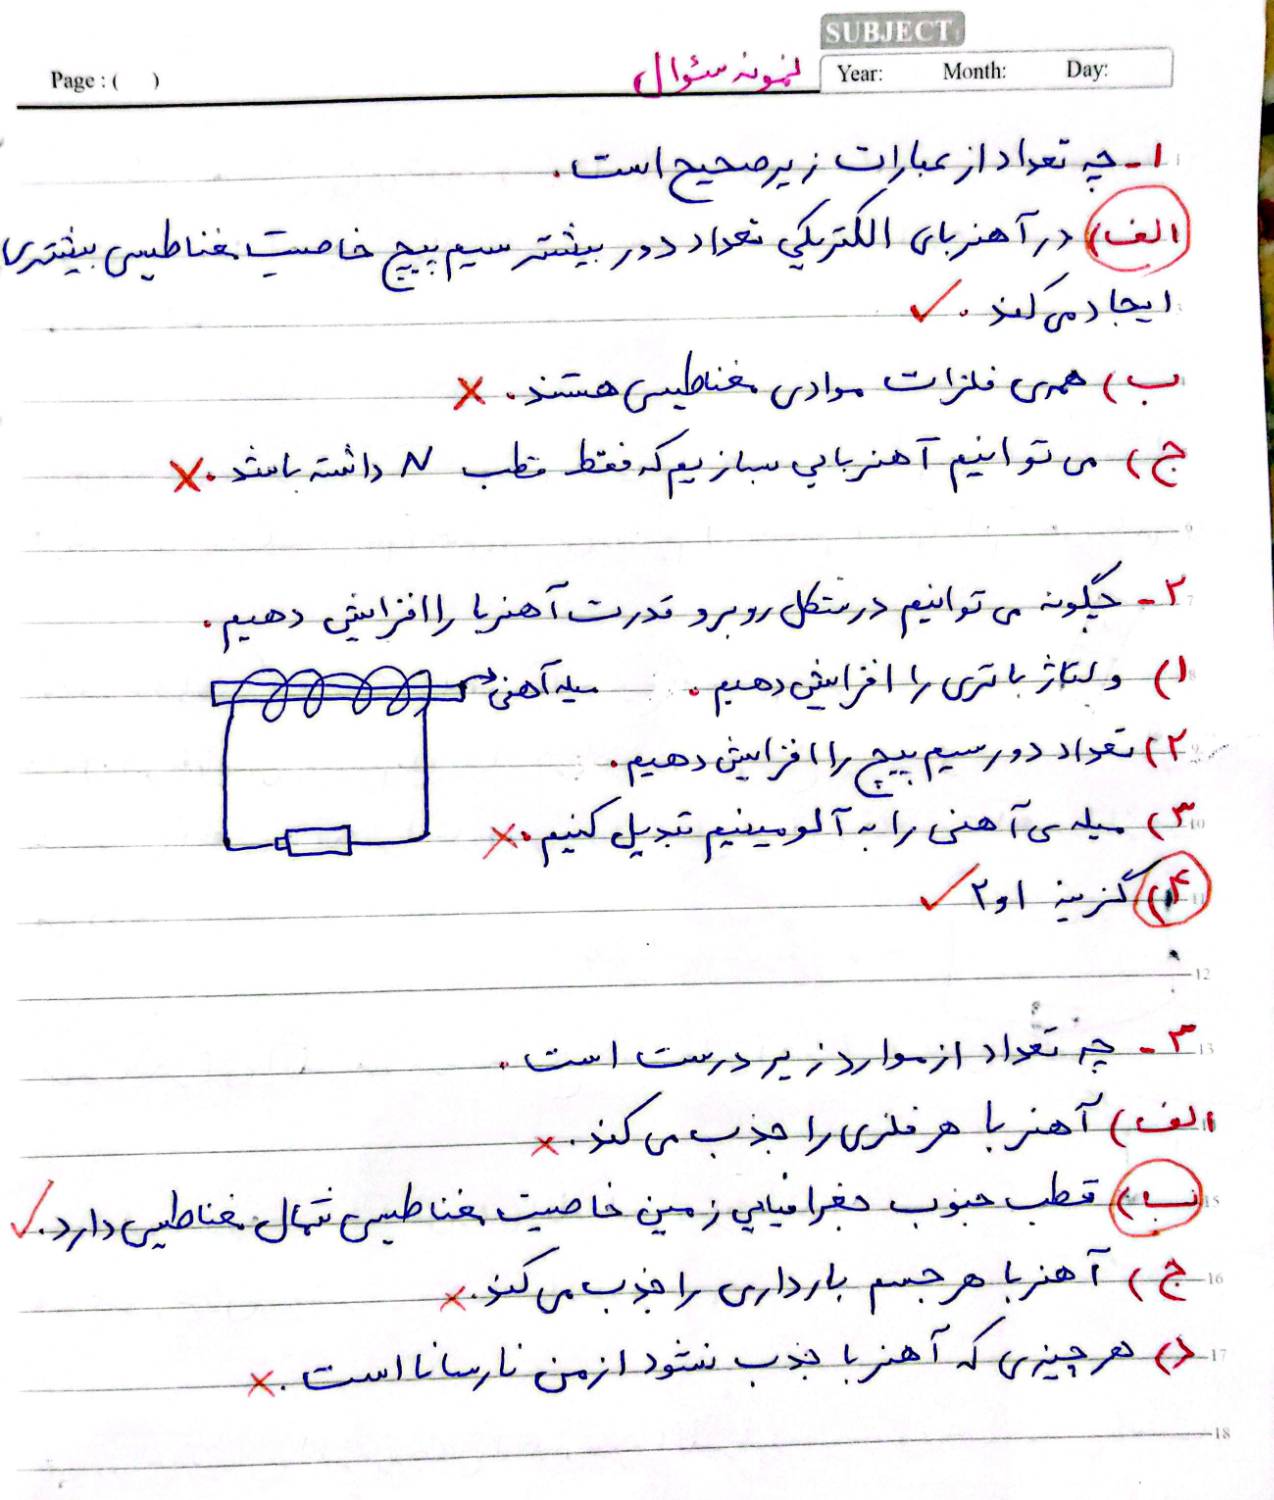 SUBJECT:
Page : ( ) نمونه سئوال Year: Month: Day:
۱- چه تعداد از عبارات زیر صحیح است.
الف) در آهنربای الکتریکی تعداد دور بیشتر سیم پیچ خاصیت مغناطیسی بیشتری
ایجاد می کند. ✓
ب) همه ی فلزات موادی مغناطیسی هستند. ×
ج) می توانیم آهنربایی بسازیم که فقط قطب N داشته باشد. ×
9
۲- چگونه می توانیم در شکل روبرو قدرت آهنربا را افزایش دهیم. 7
۱) ولتاژ باتری را افزایش دهیم. میله آهنی 8
۲) تعداد دور سیم پیچ را افزایش دهیم. 9
۳) میله ی آهنی را به آلومینیم تبدیل کنیم. × 10
۴) گزینه ۱ و ۲ ✓ 11
12
۳- چه تعداد از موارد زیر درست است. 13
الف) آهنربا هر فلزی را جذب می کند. ×
ب) قطب جنوب جغرافیایی زمین خاصیت مغناطیسی شمال مغناطیسی دارد. ✓ 15
ج) آهنربا هر جسم بارداری را جذب می کند. × 16
د) هر چیزی که آهنربا جذب نشود از من نارسانا است. × 17
18